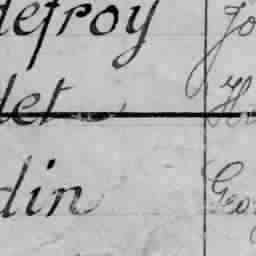 defroy Jo
det H
din Geo